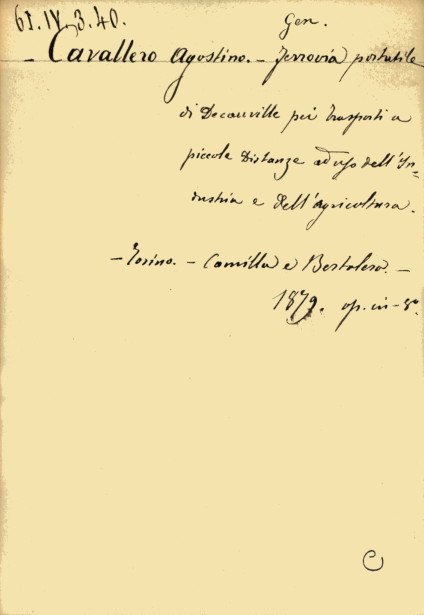 61.IV.3.40.
Gen.
– Cavallero Agostino. – Ferrovia portatile
di Decauville per trasporti a
piccole Distanze ad uso dell'In=
dustria e dell'agricoltura.
– Torino. – Camilla e Bertolero. –
1879. op. in-8°.
C